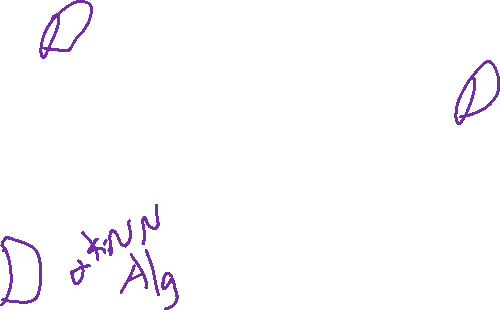 D
D
D
KNN
Alg